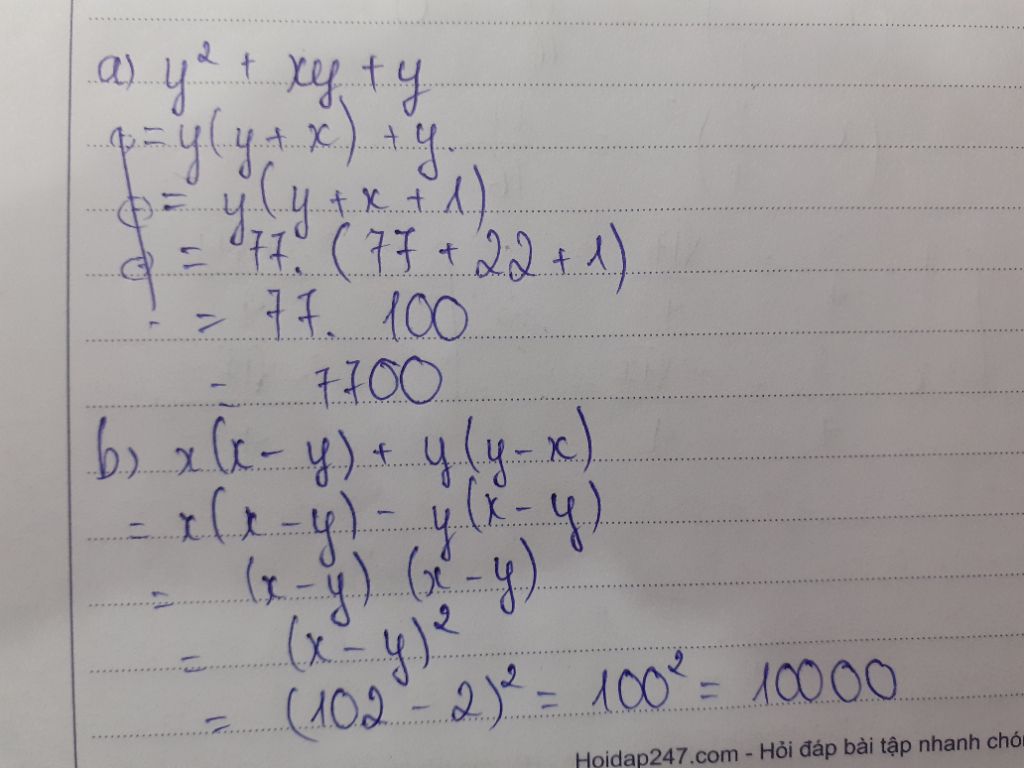 a) y² + xy + y
= y(y + x) + y.
= y(y + x + 1)
= 77. (77 + 22 + 1)
= 77. 100
= 7700
b) x(x - y) + y(y - x)
= x(x - y) - y(x - y)
= (x - y) (x - y)
= (x - y)²
= (102 - 2)² = 100² = 10000
Hoidap247.com - Hỏi đáp bài tập nhanh